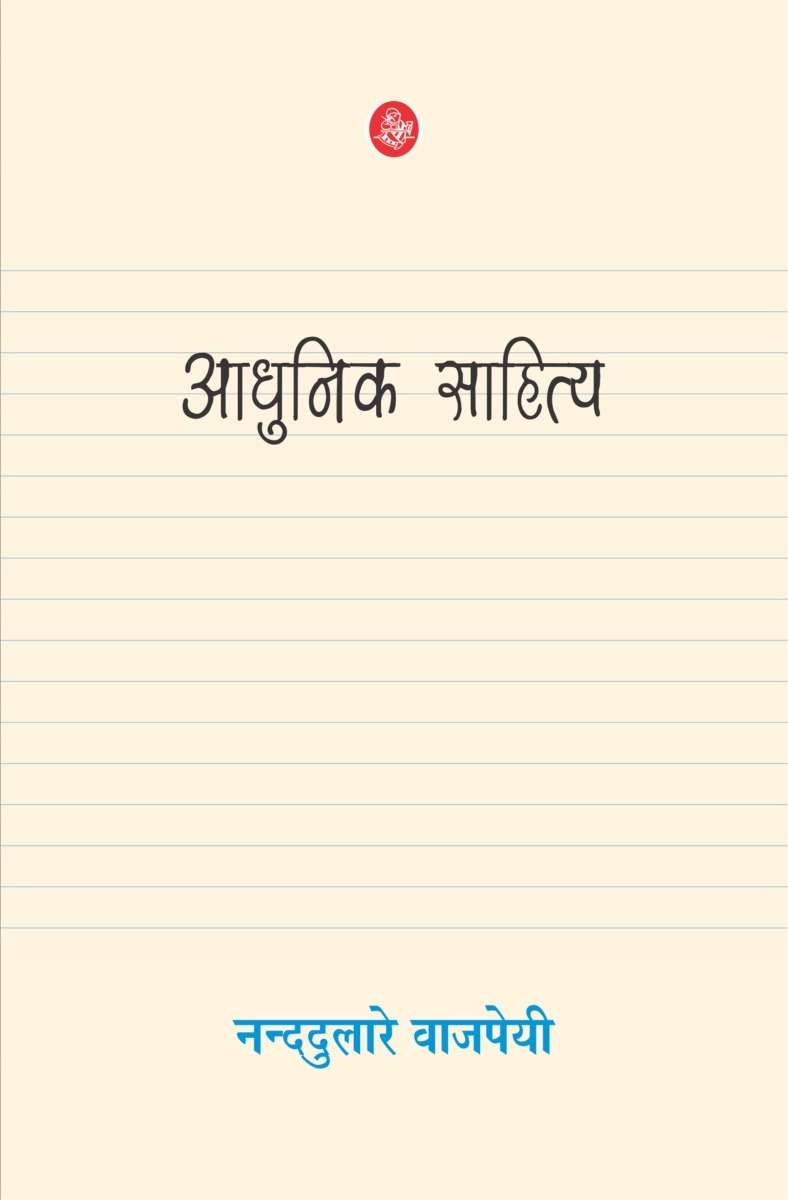 आधुनिक साहित्य
नन्ददुलारे वाजपेयी